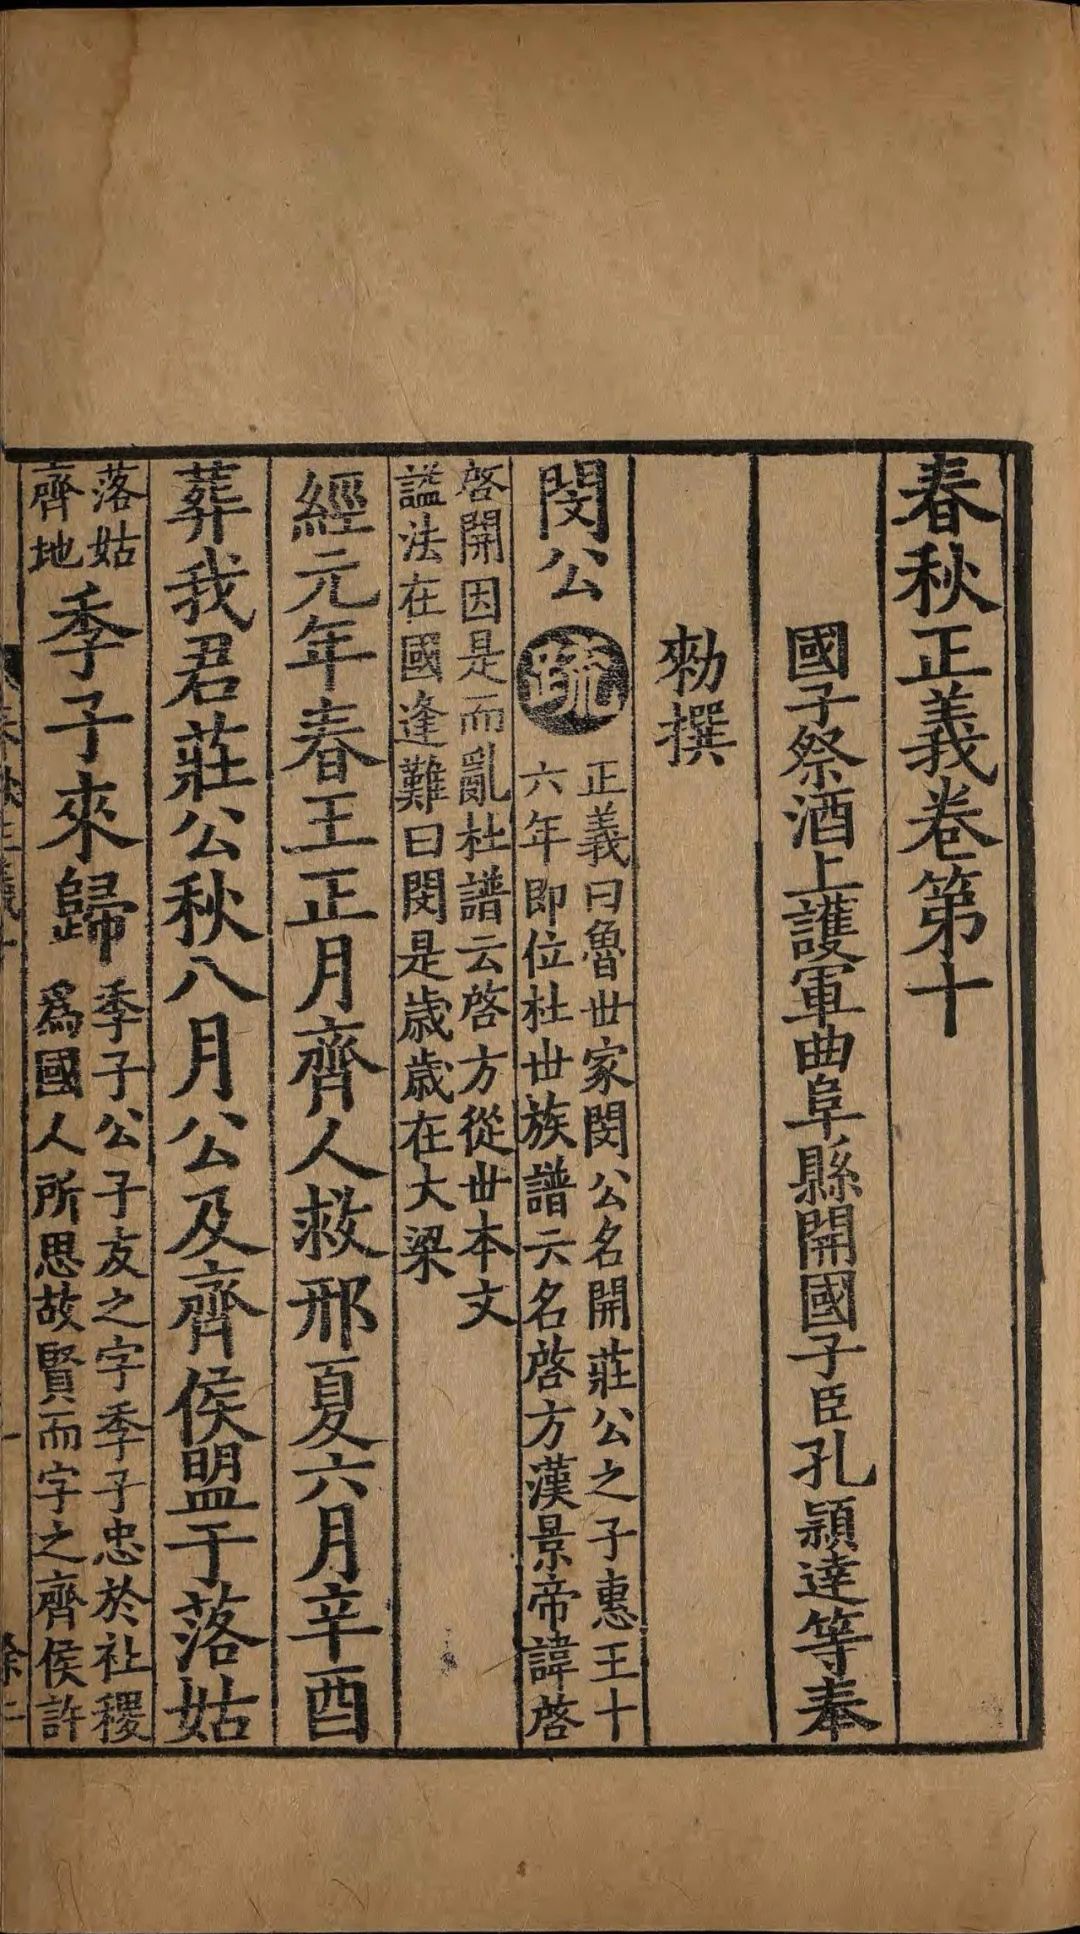 春秋正義卷第十
國子祭酒上護軍曲阜縣開國子臣孔穎達等奉
勑撰
閔公 疏 正義曰魯丗家閔公名開莊公之子惠王十
六年即位杜丗族譜云名啓方漢景帝諱啓
啓開因是而亂杜譜云啓方從丗本文
謚法在國逢難曰閔是歲歲在大梁
經元年春王正月齊人救邢夏六月辛酉
葬我君莊公秋八月公及齊侯盟于落姑
落姑
齊地
季子來歸
季子公子友之字季子忠於社稷
爲國人所思故賢而字之齊侯許